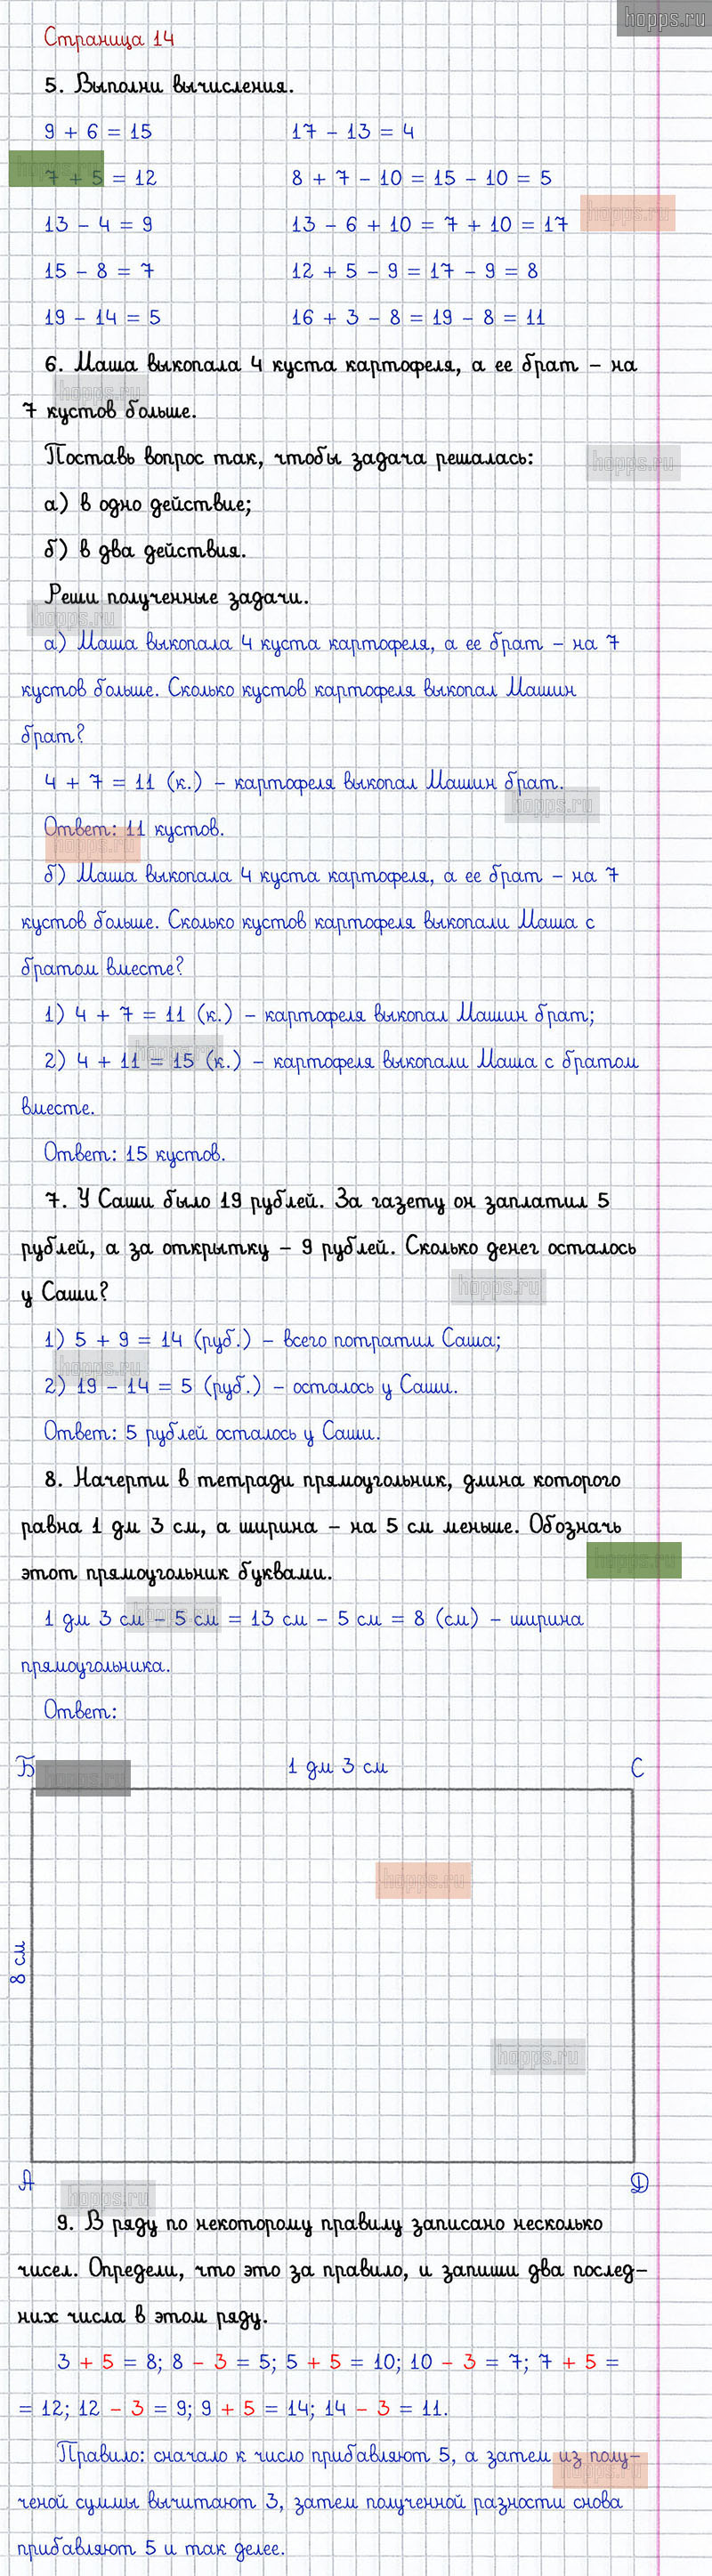 hopps.ru
Страница 14
5. Выполни вычисления.
9 + 6 = 15    17 – 13 = 4
7 + 5 = 12    8 + 7 – 10 = 15 – 10 = 5
hopps.ru
13 – 4 = 9    13 – 6 + 10 = 7 + 10 = 17
15 – 8 = 7    12 + 5 – 9 = 17 – 9 = 8
19 – 14 = 5    16 + 3 – 8 = 19 – 8 = 11
6. Маша выкопала 4 куста картофеля, а ее брат – на
hopps.ru
7 кустов больше.
Поставь вопрос так, чтобы задача решалась:
hopps.ru
а) в одно действие;
б) в два действия.
Реши полученные задачи.
hopps.ru
а) Маша выкопала 4 куста картофеля, а ее брат – на 7
кустов больше. Сколько кустов картофеля выкопал Машин
брат?
4 + 7 = 11 (к.) – картофеля выкопал Машин брат.
hopps.ru
Ответ: 11 кустов.
hopps.ru
б) Маша выкопала 4 куста картофеля, а ее брат – на 7
кустов больше. Сколько кустов картофеля выкопали Маша с
братом вместе?
1) 4 + 7 = 11 (к.) – картофеля выкопал Машин брат;
2) 4 + 11 = 15 (к.) – картофеля выкопали Маша с братом
вместе.
Ответ: 15 кустов.
7. У Саши было 19 рублей. За газету он заплатил 5
рублей, а за открытку – 9 рублей. Сколько денег осталось
у Саши?
hopps.ru
1) 5 + 9 = 14 (руб.) – всего потратил Саша;
hopps.ru
2) 19 – 14 = 5 (руб.) – осталось у Саши.
Ответ: 5 рублей осталось у Саши.
8. Начерти в тетради прямоугольник, длина которого
равна 1 дм 3 см, а ширина – на 5 см меньше. Обозначь
hopps.ru
этот прямоугольник буквами.
1 дм 3 см – 5 см = 13 см – 5 см = 8 (см) – ширина
прямоугольника.
Ответ:
Б    1 дм 3 см    С
hopps.ru
hopps.ru
8 см
hopps.ru
А    Д
hopps.ru
9. В ряду по некоторому правилу записано несколько
чисел. Определи, что это за правило, и запиши два послед–
них числа в этом ряду.
3 + 5 = 8; 8 – 3 = 5; 5 + 5 = 10; 10 – 3 = 7; 7 + 5 =
= 12; 12 – 3 = 9; 9 + 5 = 14; 14 – 3 = 11.
Правило: сначало к число прибавляют 5, а затем из полу–
hopps.ru
ченой суммы вычитают 3, затем полученной разности снова
прибавляют 5 и так делее.